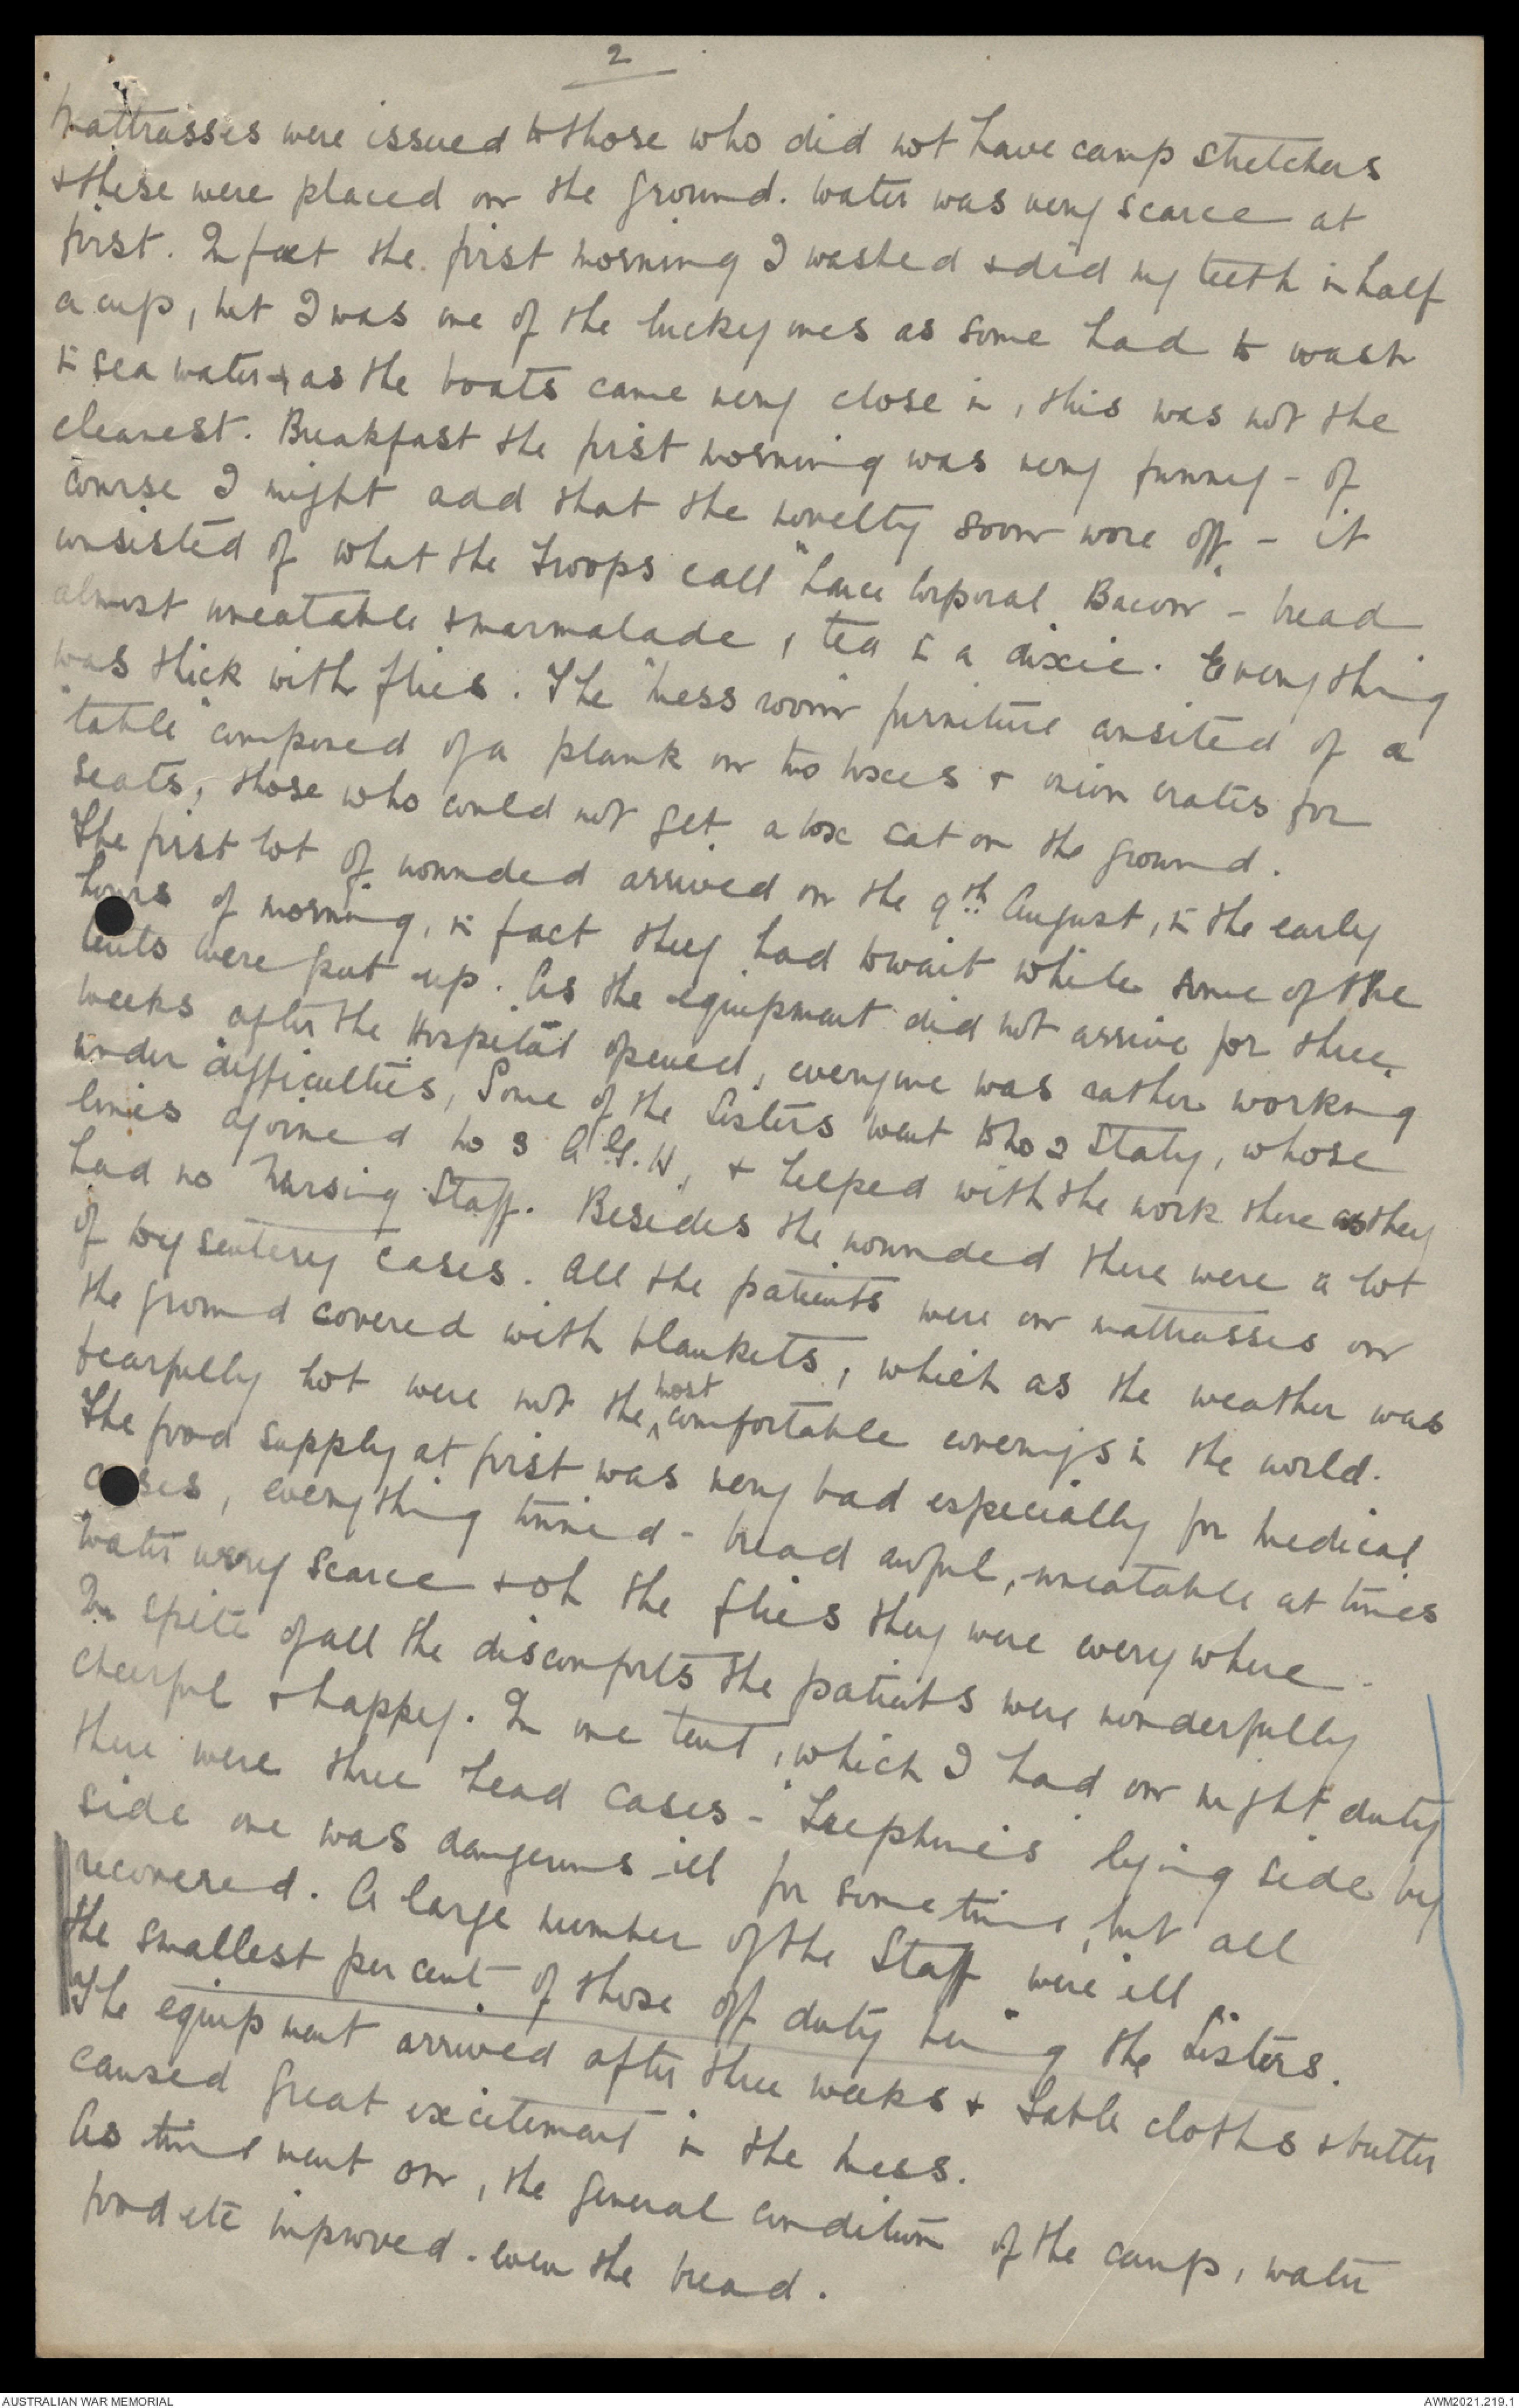 2
Mattrasses were issued to those who did not have camp stretchers
& these were placed on the ground. Water was very scarce at
first. In fact the first morning I washed & did my teeth in half
a cup, but I was one of the lucky ones as some had to wash
in sea water & as the boats came very close in, this was not the
cleanest. Breakfast the first morning was very funny - of
course I might add that the novelty soon wore off - it
consisted of what the troops call "Lance Corporal Bacon" - bread
almost uneatable & marmalade, tea in a dixie. Everything
was thick with flies. The "mess room" furniture consited of a
"table" composed of a plank on two boxes & onion crates for
seats, those who could not get a box sat on the ground.
The first lot of wounded arrived on the 9th August, in the early
hours of morning, in fact they had to wait while some of the
tents were put up. As the equipment did not arrive for three
weeks after the Hospital opened, everyone was rather working
under difficulties, Some of the Sisters went to No 2 Staty, whose
lines ajoined No 3 A.G.H., & helped with the work there as they
had no Nursing Staff. Besides the wounded there were a lot
of Dysentery cases. All the patients were on mattrasses on
the ground covered with blankets, which as the weather was
fearfully hot were not the ^most comfortable coverings in the world.
The food supply at first was very bad especially for medical
cases, everything tinned - bread awful, uneatable at times
Water very scarce & oh the flies they were everywhere.
In spite of all the discomforts the patients were wonderfully
cheerful & happy. In one tent, which I had on night duty
there were three head cases - "Trephines" lying side by
side one was dangerous ill for some time, but all
recovered. A large number of the Staff were ill
the smallest per cent of those off duty being the Sisters.
The equipment arrived after three weeks & table cloths & butter
caused great excitement in the mess.
As time went on, the general condition of the camp, water
food etc improved. even the bread.
AUSTRALIAN WAR MEMORIAL
AWM2021.219.1